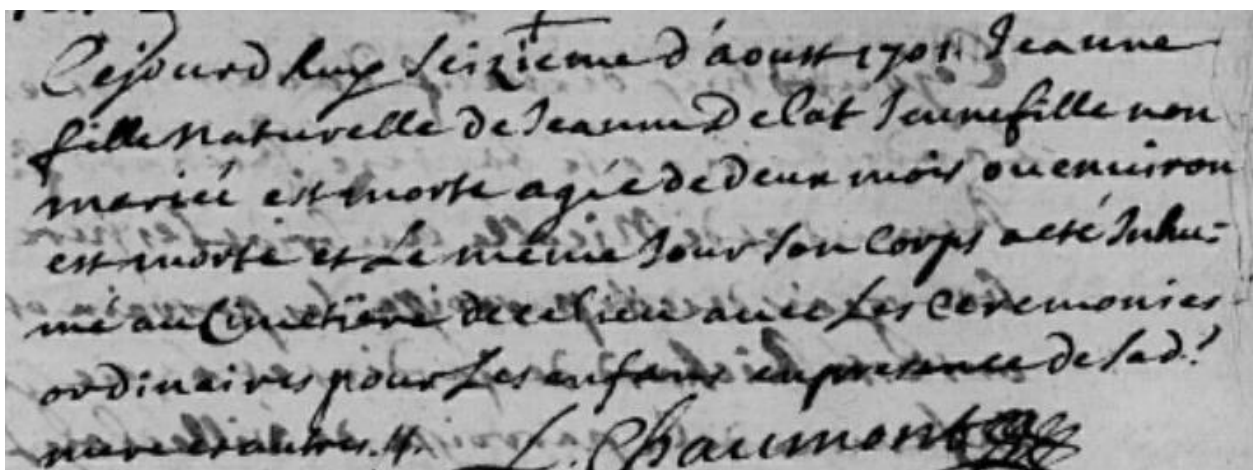 Cejourd huy seizieme d'aoust 1701 Jeanne
fille naturelle de Jeanne Delat Jeune fille non
mariée est morte agée de deux mois ou environ
est morte et Le même Jour son Corps a eté Inhu=
mé au Cimetiere de ce lieu avec Les Ceremonies
ordinaires pour Les enfans en presence de sad.
mere et autres.
L. Chaumont